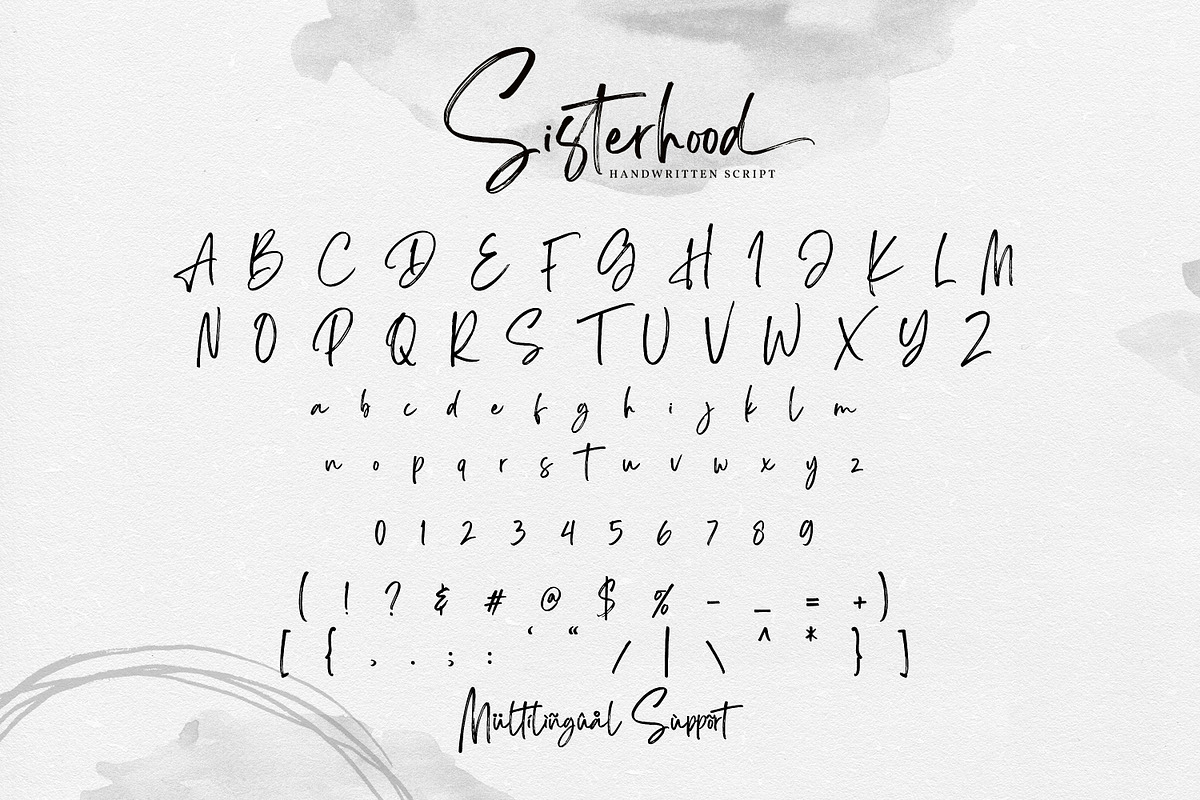 Sisterhood
HANDWRITTEN SCRIPT
A B C D E F G H I J K L M
N O P Q R S T U V W X Y Z
a b c d e f g h i j k l m
n o p q r s t u v w x y z
0 1 2 3 4 5 6 7 8 9
( ! ? & # @ $ % - _ = + )
[ { , . ; : ‘ “ / | \ ^ * } ]
Mültilìñgûàl Sùppört